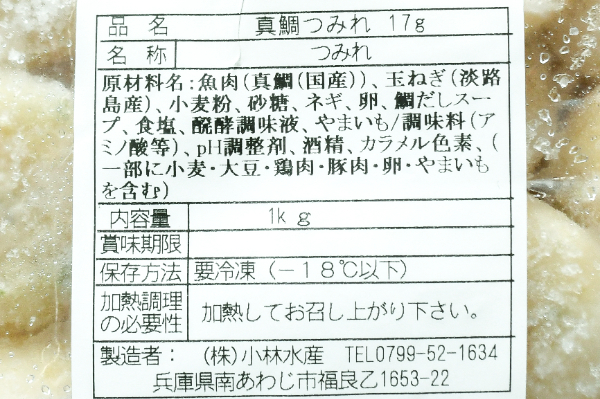 品名 真鯛つみれ 17g
名称 つみれ
原材料名:魚肉(真鯛(国産))、玉ねぎ(淡路
島産)、小麦粉、砂糖、ネギ、卵、鯛だしスー
プ、食塩、醗酵調味液、やまいも/調味料(ア
ミノ酸等)、pH調整剤、酒精、カラメル色素、(
一部に小麦・大豆・鶏肉・豚肉・卵・やまいも
を含む)
内容量 1kg
賞味期限
保存方法 要冷凍(-18℃以下)
加熱調理
の必要性 加熱してお召し上がり下さい。
製造者: (株)小林水産 TEL0799-52-1634
兵庫県南あわじ市福良乙1653-22